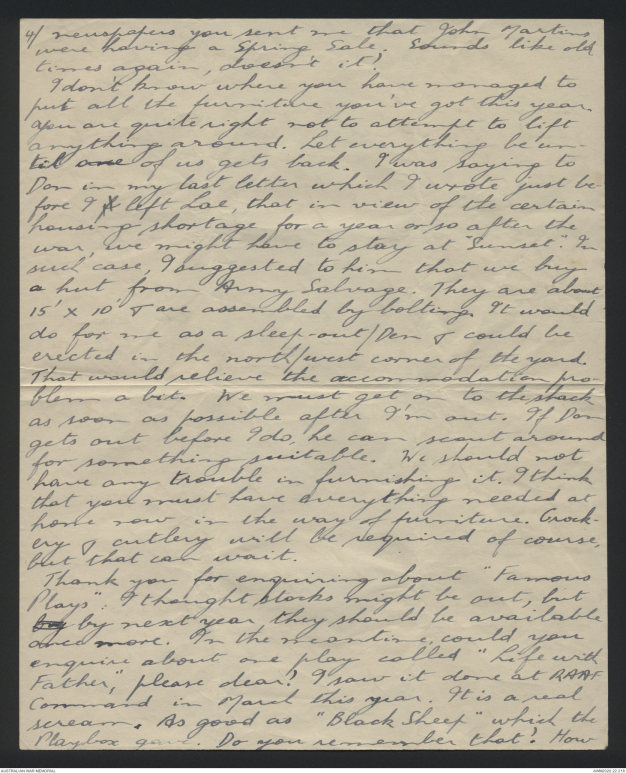 4/ newspapers you sent me that John Martins
were having a Spring Sale. Sounds like old
times again, doesn't it?
I don't know where you have managed to
put all the furniture you've got this year.
You are quite right not to attempt to lift
anything around. Let everything be un-
til one of us gets back. I was saying to
Don in my last letter which I wrote just be-
fore I left Lae, that in view of the certain
housing shortage for a year or so after the
war, we might have to stay at "Sunset". In
such case, I suggested to him that we buy
a hut from Army Salvage. They are about
15' x 10' & are assembled by bolting. It would
do for me as a sleep-out/Den & could be
erected in the north/west corner of the yard.
That would relieve the accommodation pro-
blem a bit. We must get on to the shack
as soon as possible after I'm out. If Don
gets out before I do, he can scout around
for something suitable. We should not
have any trouble in furnishing it. I think
that you must have everything needed at
home now in the way of furniture. Crock-
ery & cutlery will be required of course,
but that can wait.
Thank you for enquiring about "Famous
Plays". I thought stocks might be out, but
by by next year they should be available
once more. In the meantime, could you
enquire about one play called "Life with
Father", please dear? I saw it done at RAAF
Command in March this year. It is a real
scream. As good as "Black Sheep" which the
Playbox gave. Do you remember that? How
AUSTRALIAN WAR MEMORIAL